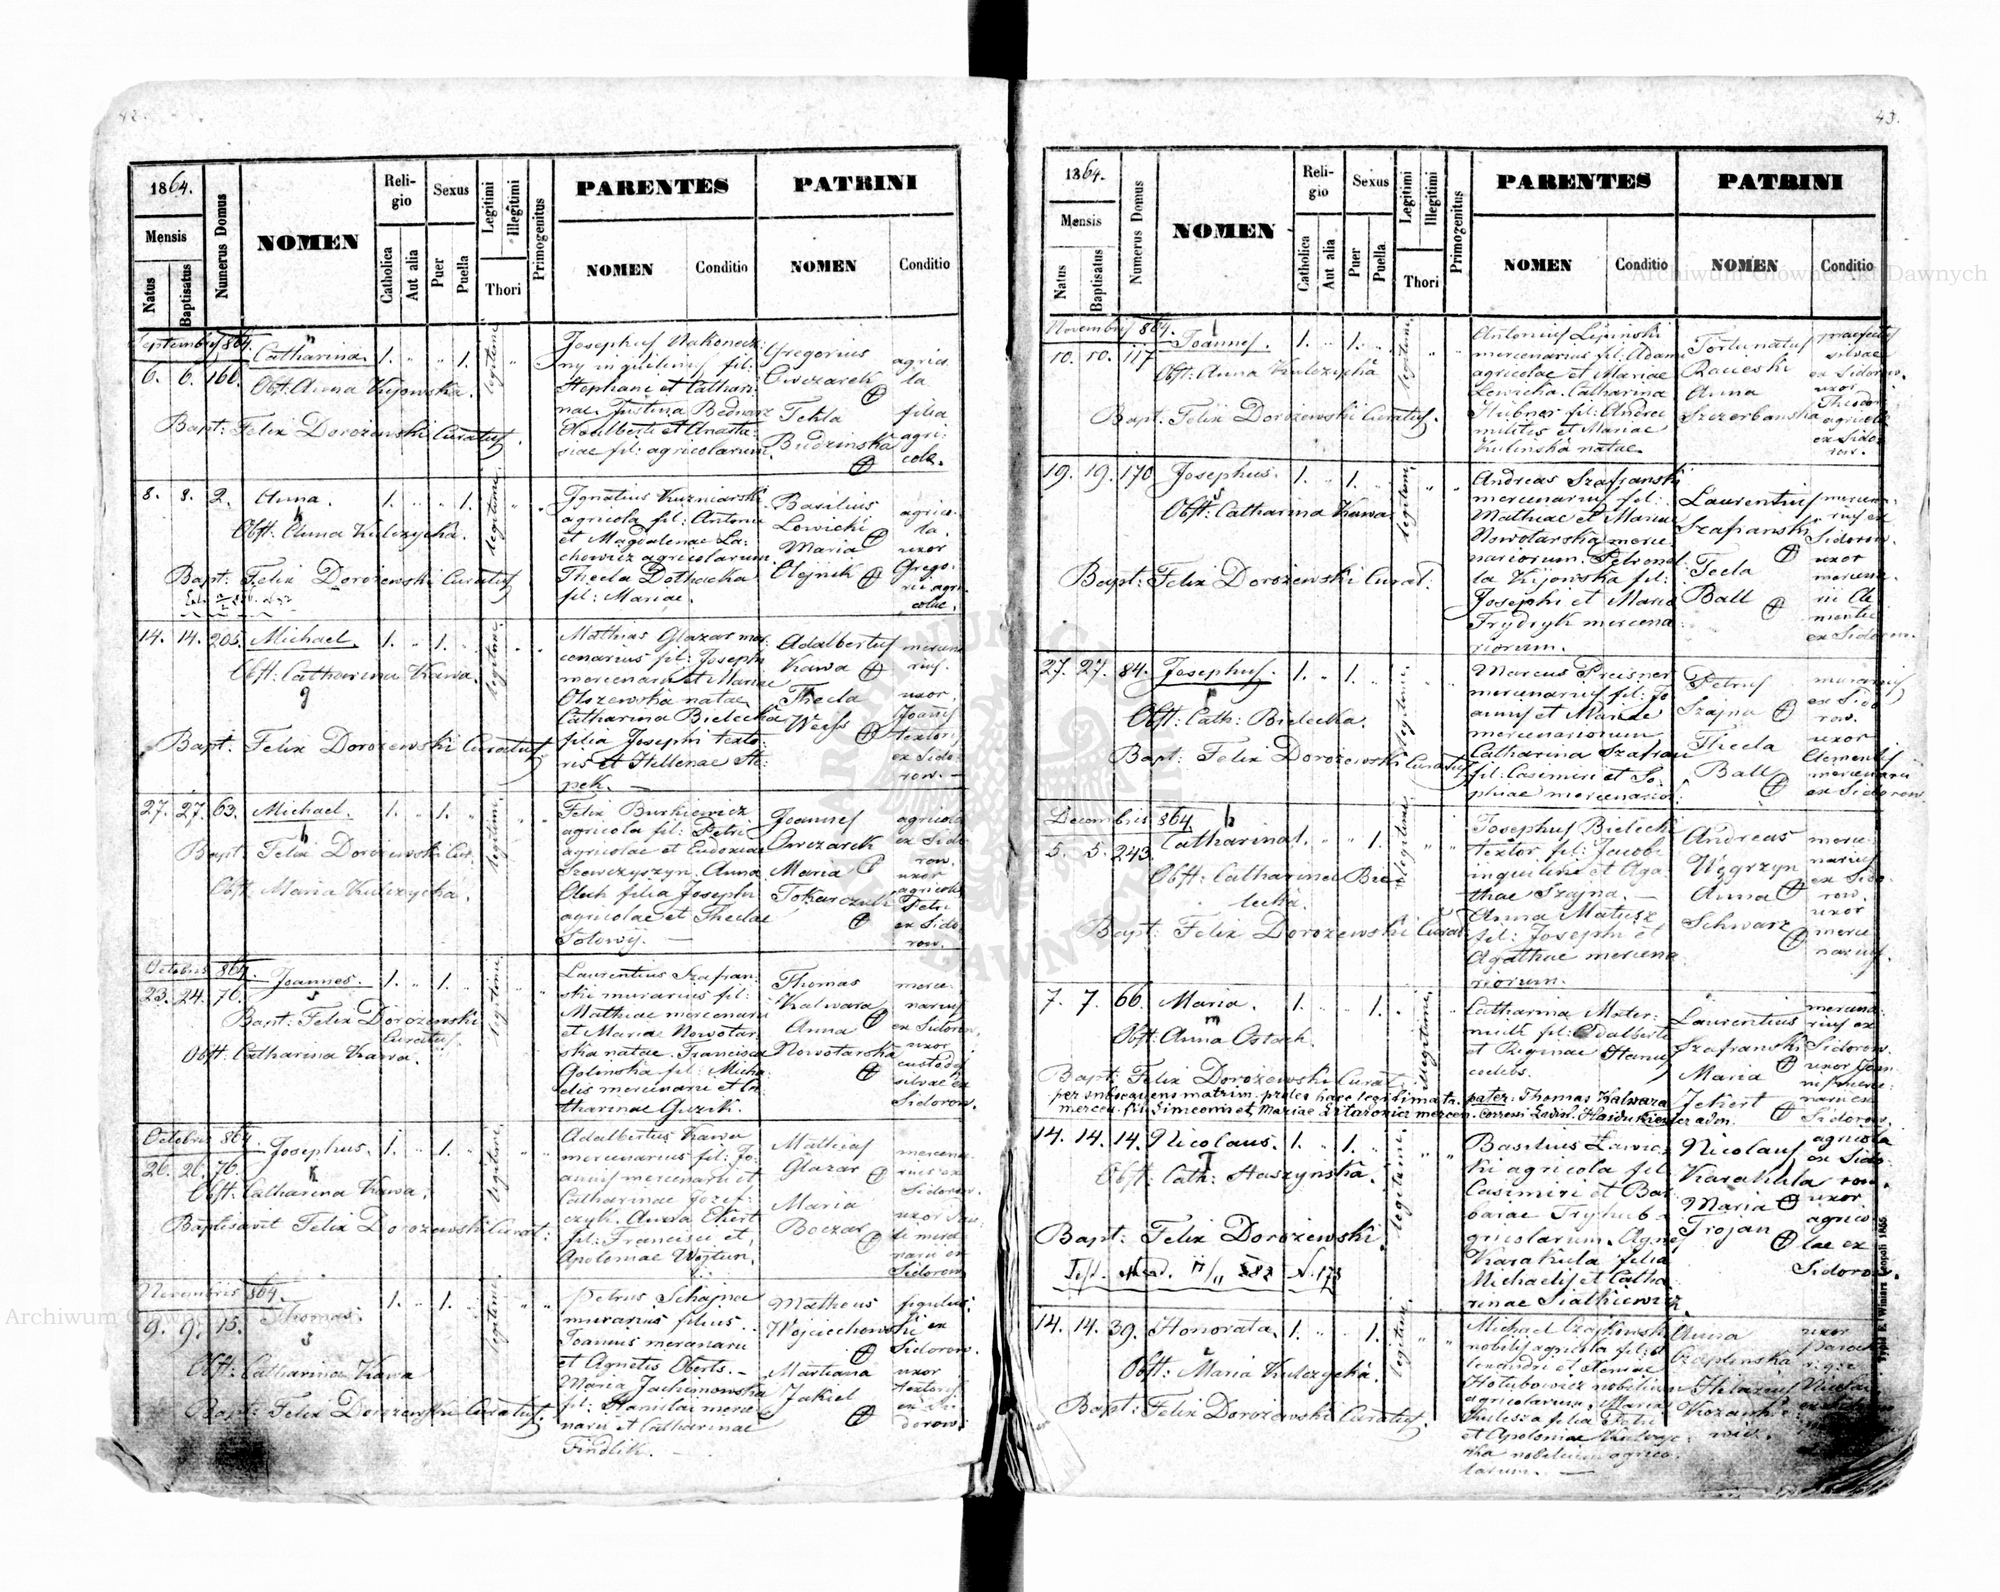 42.
1864.
Mensis
Natus
Baptisatus
Numerus Domus
NOMEN
Reli-
gio
Catholica
Aut alia
Sexus
Puer
Puella
Legitimi
Illegitimi
Thori
Primogenitus
PARENTES
NOMEN
Conditio
PATRINI
NOMEN
Conditio
Septembris 864.
6. 6. 161. Catharina. 1. 1.
Obst. Anna Kijowska.
Bapt: Felix Dorożewski Curatus.
legitimi
Josephus Nakonecz:
ny inquilinus fil:
Stephani et Cathari:
nae. Justina Bednarz
Adalberti et Anasta:
siae fil: agricolarum.
Gregorius
Owczarek
Tekla
Budzinska
agrico
la
filia
agri:
colae.
8. 8. 2. Anna. 1. 1.
Obst. Anna Kulczycka.
Bapt: Felix Dorożewski Curatus
legitimi
Ignatius Kuzniarski
agricola fil: Antonii
et Magdalenae La:
chowicz agricolarum.
Thecla
fil: Mariae.
Basilius
Lowicki
Maria
Olejnik
agrico:
la.
uxor
Grego:
rii agri:
colae.
14. 14. 205. Michael. 1. 1.
Obst. Catharina Kawa.
Bapt: Felix Dorożewski Curatus
legitimi
Mathias Glazar mer:
cenarius fil: Josephi
mercenarii et Mariae
Olszewska natae
Catharina Bielecka
filia Josephi texto:
ris et Hellenae Ste:
pek. —
Adalbertus
Kawa
Thecla
Weiss
mercena
rius.
uxor
Joannis
textoris
ex Sido:
row. —
27. 27. 63. Michael. 1. 1.
Bapt: Felix Dorożewski Cur.
Obst. Maria Kulczycka.
legitimi
Felix Burkiewicz
agricola fil: Petri
agricolae et Eudoxiae
Szewczyszyn. Anna
Olech filia Josephi
agricolae et Theclae
Sotowij. —
Joannes
Owczarek
Maria
Tokarczuk
agricola
ex Sido
row.
uxor
agricolae
Petri
ex Sido
row.
Octobris 864.
23. 24. 71. Joannes. 1. 1.
Bapt: Felix Dorożewski
Curatus.
Obst. Catharina Kawa.
legitimi
Laurentius Szafran:
ski murarius fil:
Mathiae mercenarii
et Mariae Nowotar:
ska natae. Francisca
Golonska fil: Micha
elis mercenarii et Ca:
tharinae Guzik.
Thomas
Kalwara
Anna
Nowotarska
merce:
narius
ex Sidorow.
uxor
custodis
silvae ex
Sidorow.
Octobris 864.
26. 26. 76. Josephus. 1. 1.
Obst: Catharina Kawa.
Baptisavit Felix Dorożewski Curat:
legitimi
Adalbertus Kawa
mercenarius fil: Jo:
annis mercenarii et
Catharinae Józef:
czyk. Anna Ekert
fil: Francisci et
Apoloniae Wojtun.
Mathias
Glazar
Maria
Boczar
mercena:
rius ex
Sidorow.
uxor
Sidorow.
Novembris 864.
9. 9. 15. Thomas. 1. 1.
Obst: Catharina Kawa
Bapt: Felix Dorożewski Curatus.
legitimi
Petrus Schajna
murarius filius
Joannis mercenarii
et Agnetis Oberts. —
Maria Jachimowska
fil: Stanislai merce
narii et Catharinae
Findlik. —
Matheus
Wojciechowski
Martiana
Jakiel
figulus
ex
Sidorow.
uxor
textoris
ex Si
dorow:
43.
1864.
Mensis
Natus
Baptisatus
Numerus Domus
NOMEN
Reli-
gio
Catholica
Aut alia
Sexus
Puer
Puella
Legitimi
Illegitimi
Thori
Primogenitus
PARENTES
NOMEN
Conditio
PATRINI
NOMEN
Conditio
Novembris 864.
10. 10. 117 Joannes. 1. 1.
Obst: Anna Kulczycka
Bapt. Felix Dorożewski Curatus.
legitimi
Antonius Lipinski
mercenarius fil: Adami
agricolae et Mariae
Lewicka. Catharina
Hübner fil: Andrei
militis et Mariae
Kulinska natae.
Fortunatus
Raucski
Anna
Szczerbanska
praefectus
silvae
ex Sidorow.
uxor
Theodori
agricolae
ex Sido:
row.
19. 19. 170 Josephus. 1. 1.
Obst: Catharina Kawa
Bapt: Felix Dorożewski Curat:
legitimi
Andreas Szafranski
mercenarius fil:
Mathiae et Mariae
Nowotarska merce:
nariorum. Petronel:
la Kijowska fil:
Josephi et Maria
Frydryk mercena
riorum.
Laurentius
Szafranski
Tecla
Ball
mercena:
rius ex
Sidorow.
uxor
mercena:
rii Cle
mentis
ex Sidorow.
27. 27. 84. Josephus. 1. 1.
Obst: Cath: Bielecka.
Bapt: Felix Dorożewski Curatus
legitimi
Marcus Preisner
mercenarius fil: Jo
annis et Mariae
mercenariorum
Catharina Szafran
fil: Casimiri et So:
phiae mercenarior:
Petrus
Szajna
Thecla
Ball
murarius
ex Sido
row.
uxor
Clementis
mercenarii
ex Sidorow.
Decembris 864
5. 5. 243. Catharina 1. 1.
Obst: Catharina Bie
lecka.
Bapt: Felix Dorożewski Curat
legitimi
Josephus Bielecki
textor fil: Jacobi
inquilini et Aga:
thae Szajna. —
Anna Matusz
fil: Josephi et
Agathae mercena
riorum.
Andreas
Węgrzyn
Anna
Schwarz
merce:
narius
ex Sido:
row.
uxor
merce
narius.
7. 7. 66. Maria. 1. 1.
Obst: Anna Ostach.
Bapt: Felix Dorożewski Curat
illegitimi
Catharina Mater:
nuli fil: Adalberti
et Reginae Hanus
coelebs.
Laurentius
Szafranski
Maria
Jekert
mercena:
rius ex
Sidorow.
uxor Joan
nis merce:
narii ex
Sidorow.
per subsequens matrim. proles haec legitimata. pater: Thomas Kalwara
mercen. fil. Simeonis et Mariae mercen. Correxi Ladisl. Hajdukiewicz adm.
14. 14. 14. Nicolaus. 1. 1.
Obst: Cath: Haszynska.
Bapt: Felix Dorożewski.
legitimi
Basilius Lawic:
ki agricola fil
Casimiri et Bar
barae Tryhub a
gricolarum. Agnes
Karakula filia
Michaelis et Catha
rinae Siatkiewicz.
Nicolaus
Karakula
Maria
Trojan
agricola
ex Sido:
row.
uxor
agrico
lae ex
Sidorow.
14. 14. 39. Honorata. 1. 1.
Obst: Maria Kulczycka.
Bapt: Felix Dorożewski Curatus.
legitimi
Michael Czajkowski
nobilis agricola fil: A
lexandri et Xeniae
Hołubowicz nobilium
agricolarum. Maria
Kulesza filia Petri
et Apoloniae Kulczyc:
ka nobilium agrico
larum. —
Anna
Czaplinska
Hilarius
Kozanki
uxor
Typis E. Winiarz Leopoli 1855
Archiwum Główne Akt Dawnych